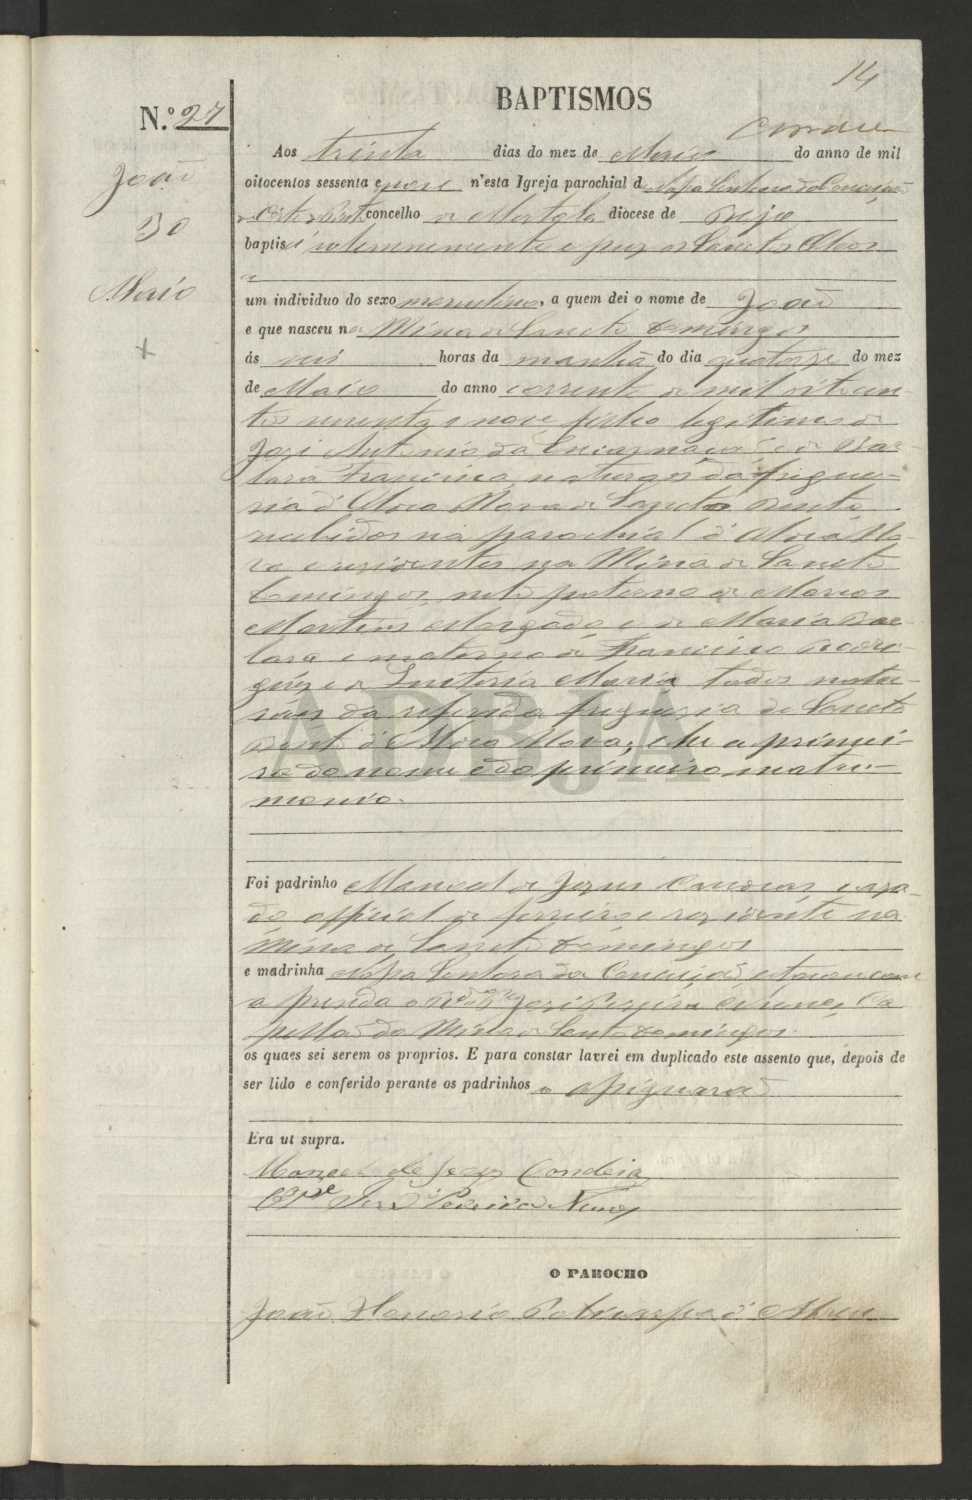 14
BAPTISMOS
N.º 27
João
30
Maio
Aos trinta dias do mez de Maio do anno de mil
oitocentos sessenta e nove n'esta Igreja parochial d Nossa Senhora da Conceição
concelho de Mertola diocese de Beja
baptisei solemnemente e puz os Sanctos Oleos
a
um individuo do sexo masculino, a quem dei o nome de João
e que nasceu na Mina de Sancto Domingos
ás seis horas da manhã do dia quatorze do mez
de Maio do anno corrente de mil oitocen-
tos sessenta e nove filho legitimo de
José Antonio da Encarnação e de Bar-
bara Francisca naturaes da fregue-
sia d'Aldea Nova de Sancto Bento
recebidos na parochial d'Aldea No-
va e residentes na Mina de Sancto
Domingos, neto paterno de Marcos
Martins Morgado e de Maria Bar-
bara e materno de Francisco Rodri-
gues e Maria todos natu-
raes da referida freguesia de Sancto
Bento d'Aldea Nova, e he o primei-
ro do nome e do primeiro matri-
monio.
Foi padrinho Manoel de Jezus Candeias casa-
do official de ferreiro e residente na
Mina de Sancto Domingos
e madrinha Nossa Senhora da Conceição, e tocou com
a prenda o José Pereira Nunes Ca
pellão da Mina de Sancto Domingos.
os quaes sei serem os proprios. E para constar lavrei em duplicado este assento que, depois de
ser lido e conferido perante os padrinhos o assignarão
Era ut supra.
Manoel de Jezus Candeias
José Pereira Nunes
O PAROCHO
João Honorio Policarpo d'Abreu
ADBJA